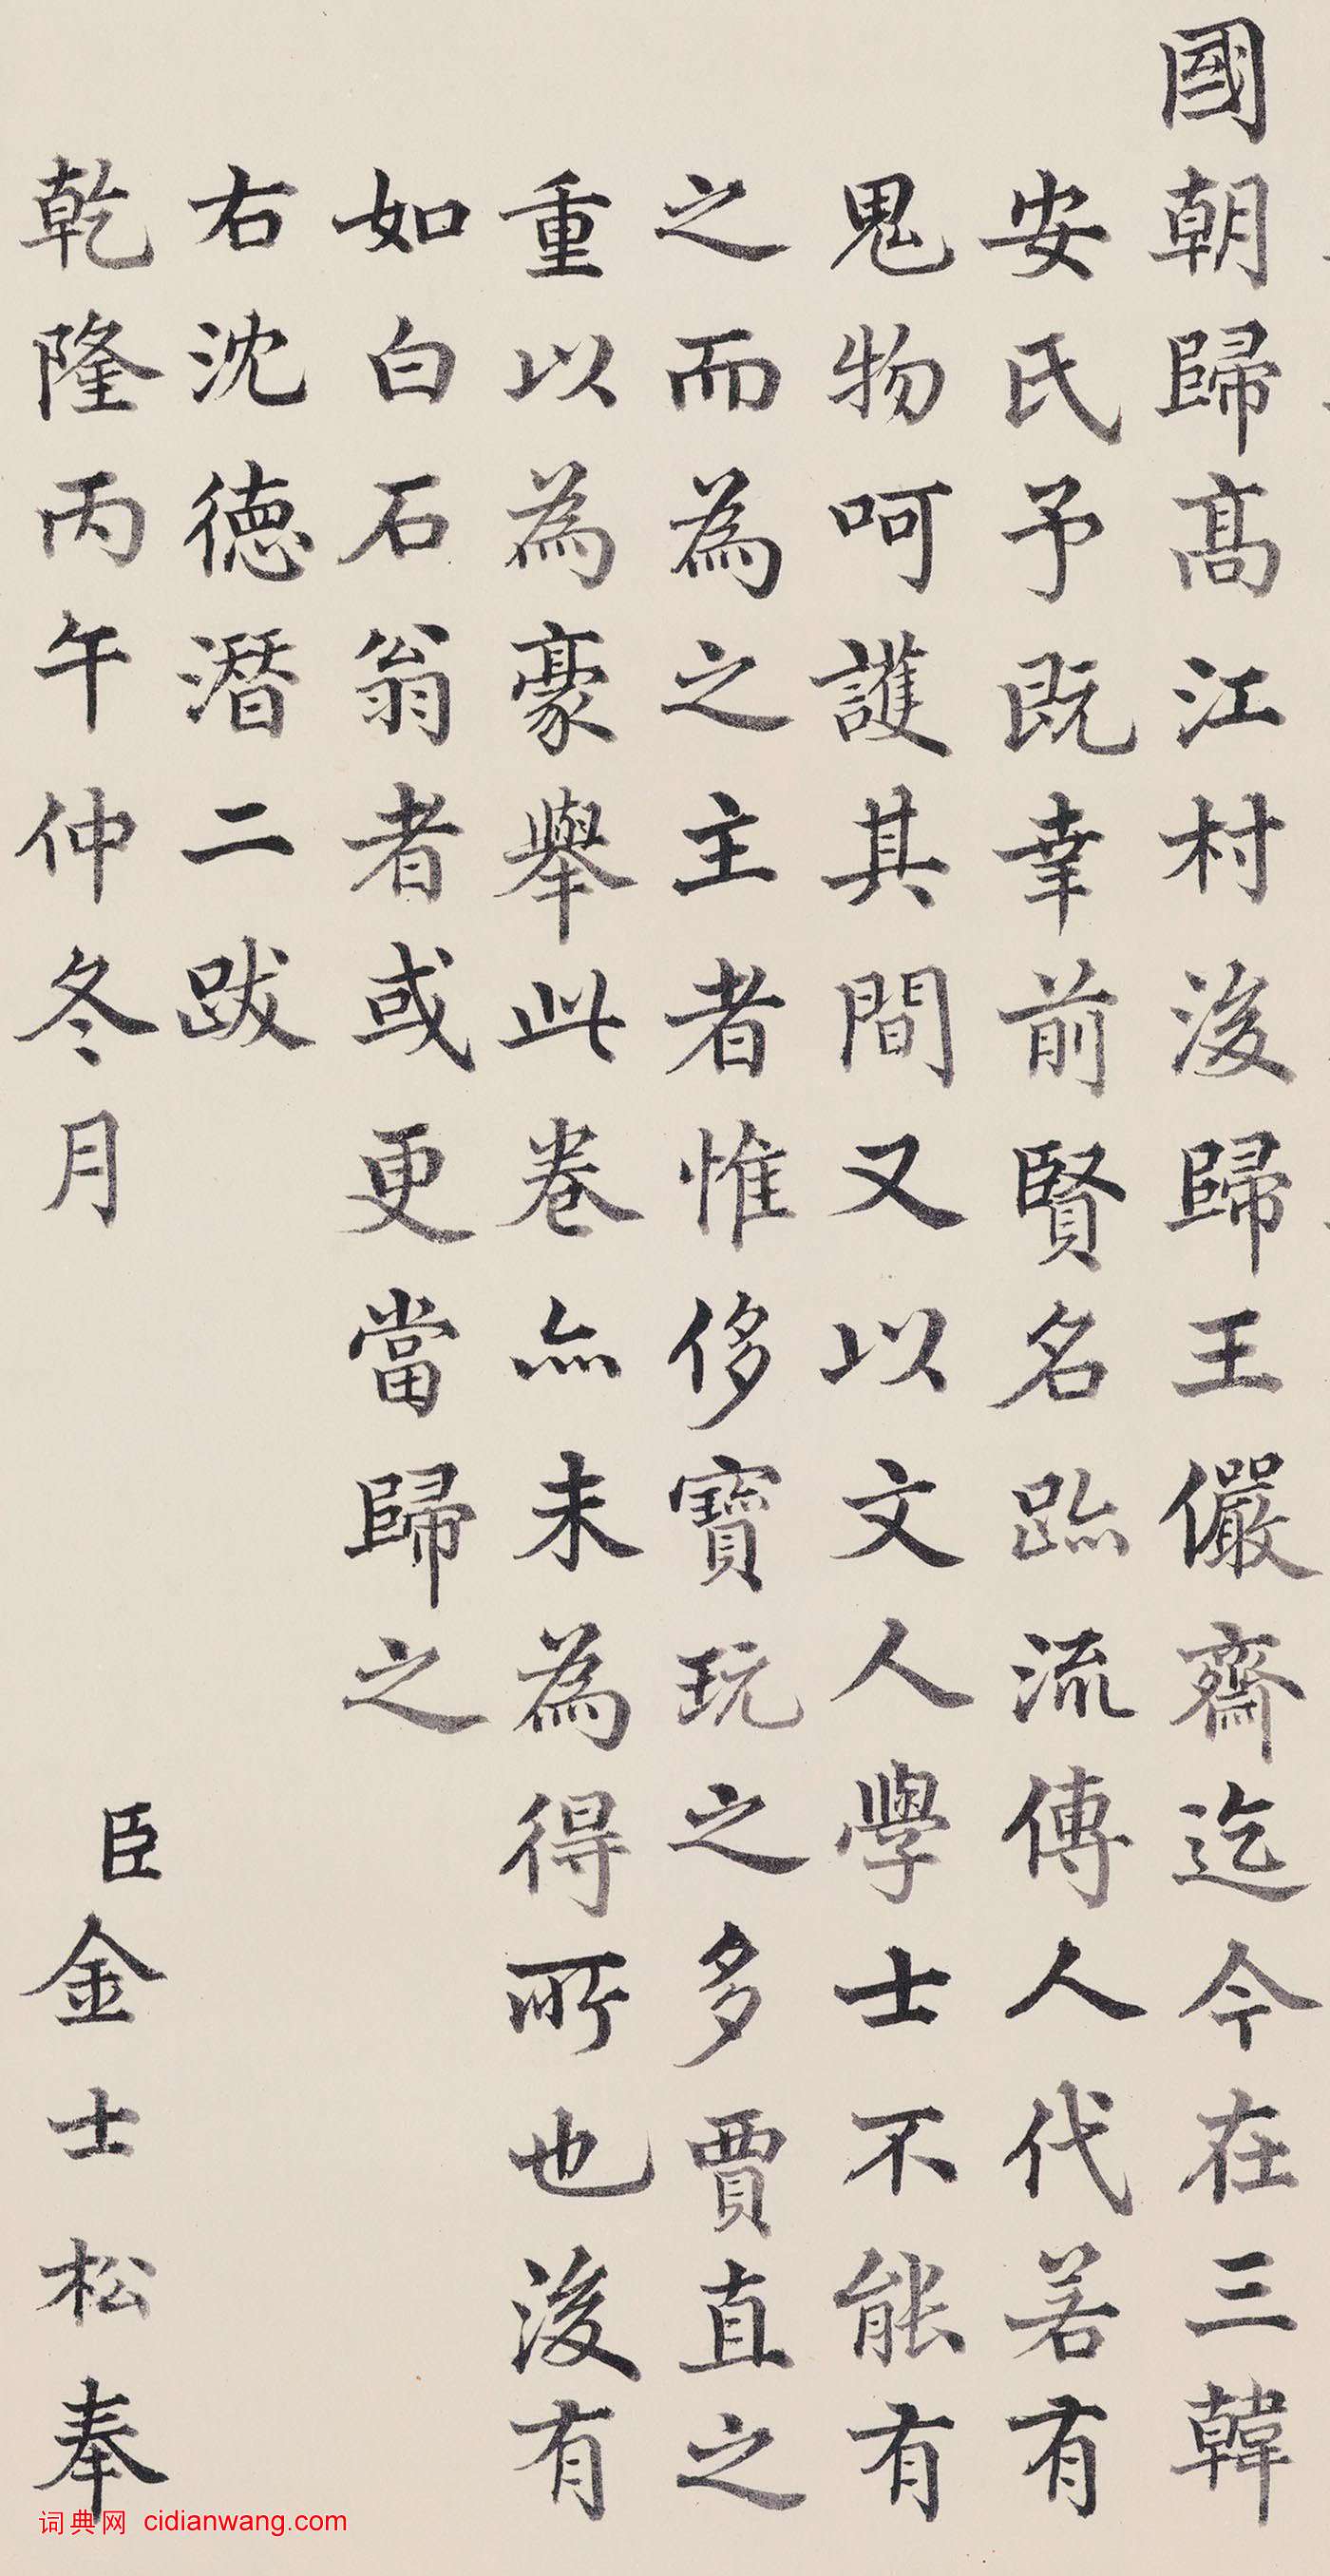 國朝歸髙江村後歸王儼齋迄今在三韓
安氏予既幸前賢名跡流傳人代若有
鬼物呵護其間又以文人學士不能有
之而為之主者惟侈寶玩之多賈直之
重以為豪舉此卷亦未為得所也後有
如白石翁者或更當歸之
右沈德潛二跋
乾隆丙午仲冬月
臣金士松奉
词典网 cidianwang.com